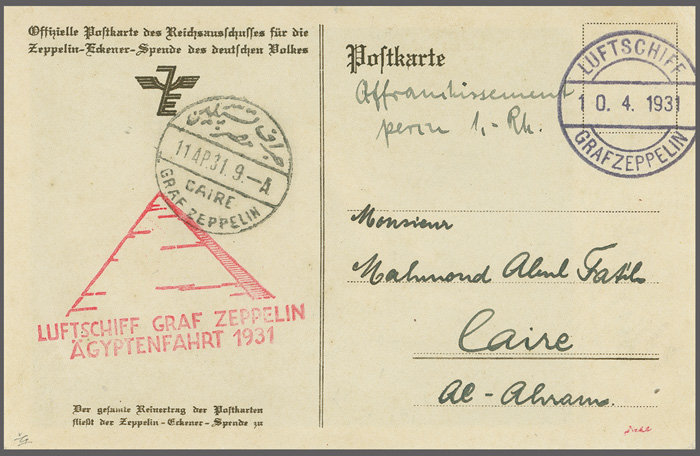 Offizielle Postkarte des Reichsausschusses für die
Zeppelin-Eckener-Spende des deutschen Volkes
ZE
جراف تسبلين
11 AP.31. 9.-A
CAIRE
GRAF ZEPPELIN
LUFTSCHIFF GRAF ZEPPELIN
ÄGYPTENFAHRT 1931
Der gesamte Reinertrag der Postkarten
fließt der Zeppelin-Eckener-Spende zu
Postkarte
Affranchissement
1,- Rh.
LUFTSCHIFF
10.4.1931
GRAF ZEPPELIN
Monsieur
Mahmoud Abul Fath
Caire
Al-Ahram.